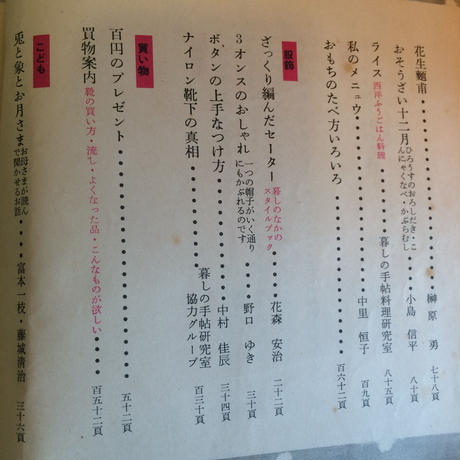 花生麺甫・・・・・・・・・・・・・・・榊原 勇 七十八頁
おそうざい十二月 ひろうすのおろしだき・こんにゃくなべ・かぶらむし・・・小島 信平 八十頁
ライス 西洋ふうごはん料理・・・・・・・暮しの手帖料理研究室 八十五頁
私のメニュウ・・・・・・・・・・・・・中里 恒子 百九頁
おもちのたべ方いろいろ・・・・・・・・・・百六十二頁
服飾
ざっくり編んだセーター 暮しのなかのスタイルブック・・・花森 安治 二十二頁
3オンスのおしゃれ 一つの帽子がいく通りにもかぶれるのです・・・野口 ゆき 三十頁
ボタンの上手なつけ方・・・・・・・・・中村 佳辰 三十四頁
ナイロン靴下の真相・・・・・・・暮しの手帖研究室 協力グループ 百三十頁
買い物
百円のプレゼント・・・・・・・・・・・・・・五十二頁
買物案内 靴の買い方・流し・よくなった品・こんなものが欲しい・・・・・百五十二頁
こども
兎と象とお月さま お母さまが読んで聞かせるお話・・・・富本 一枝・藤城 清治 三十六頁